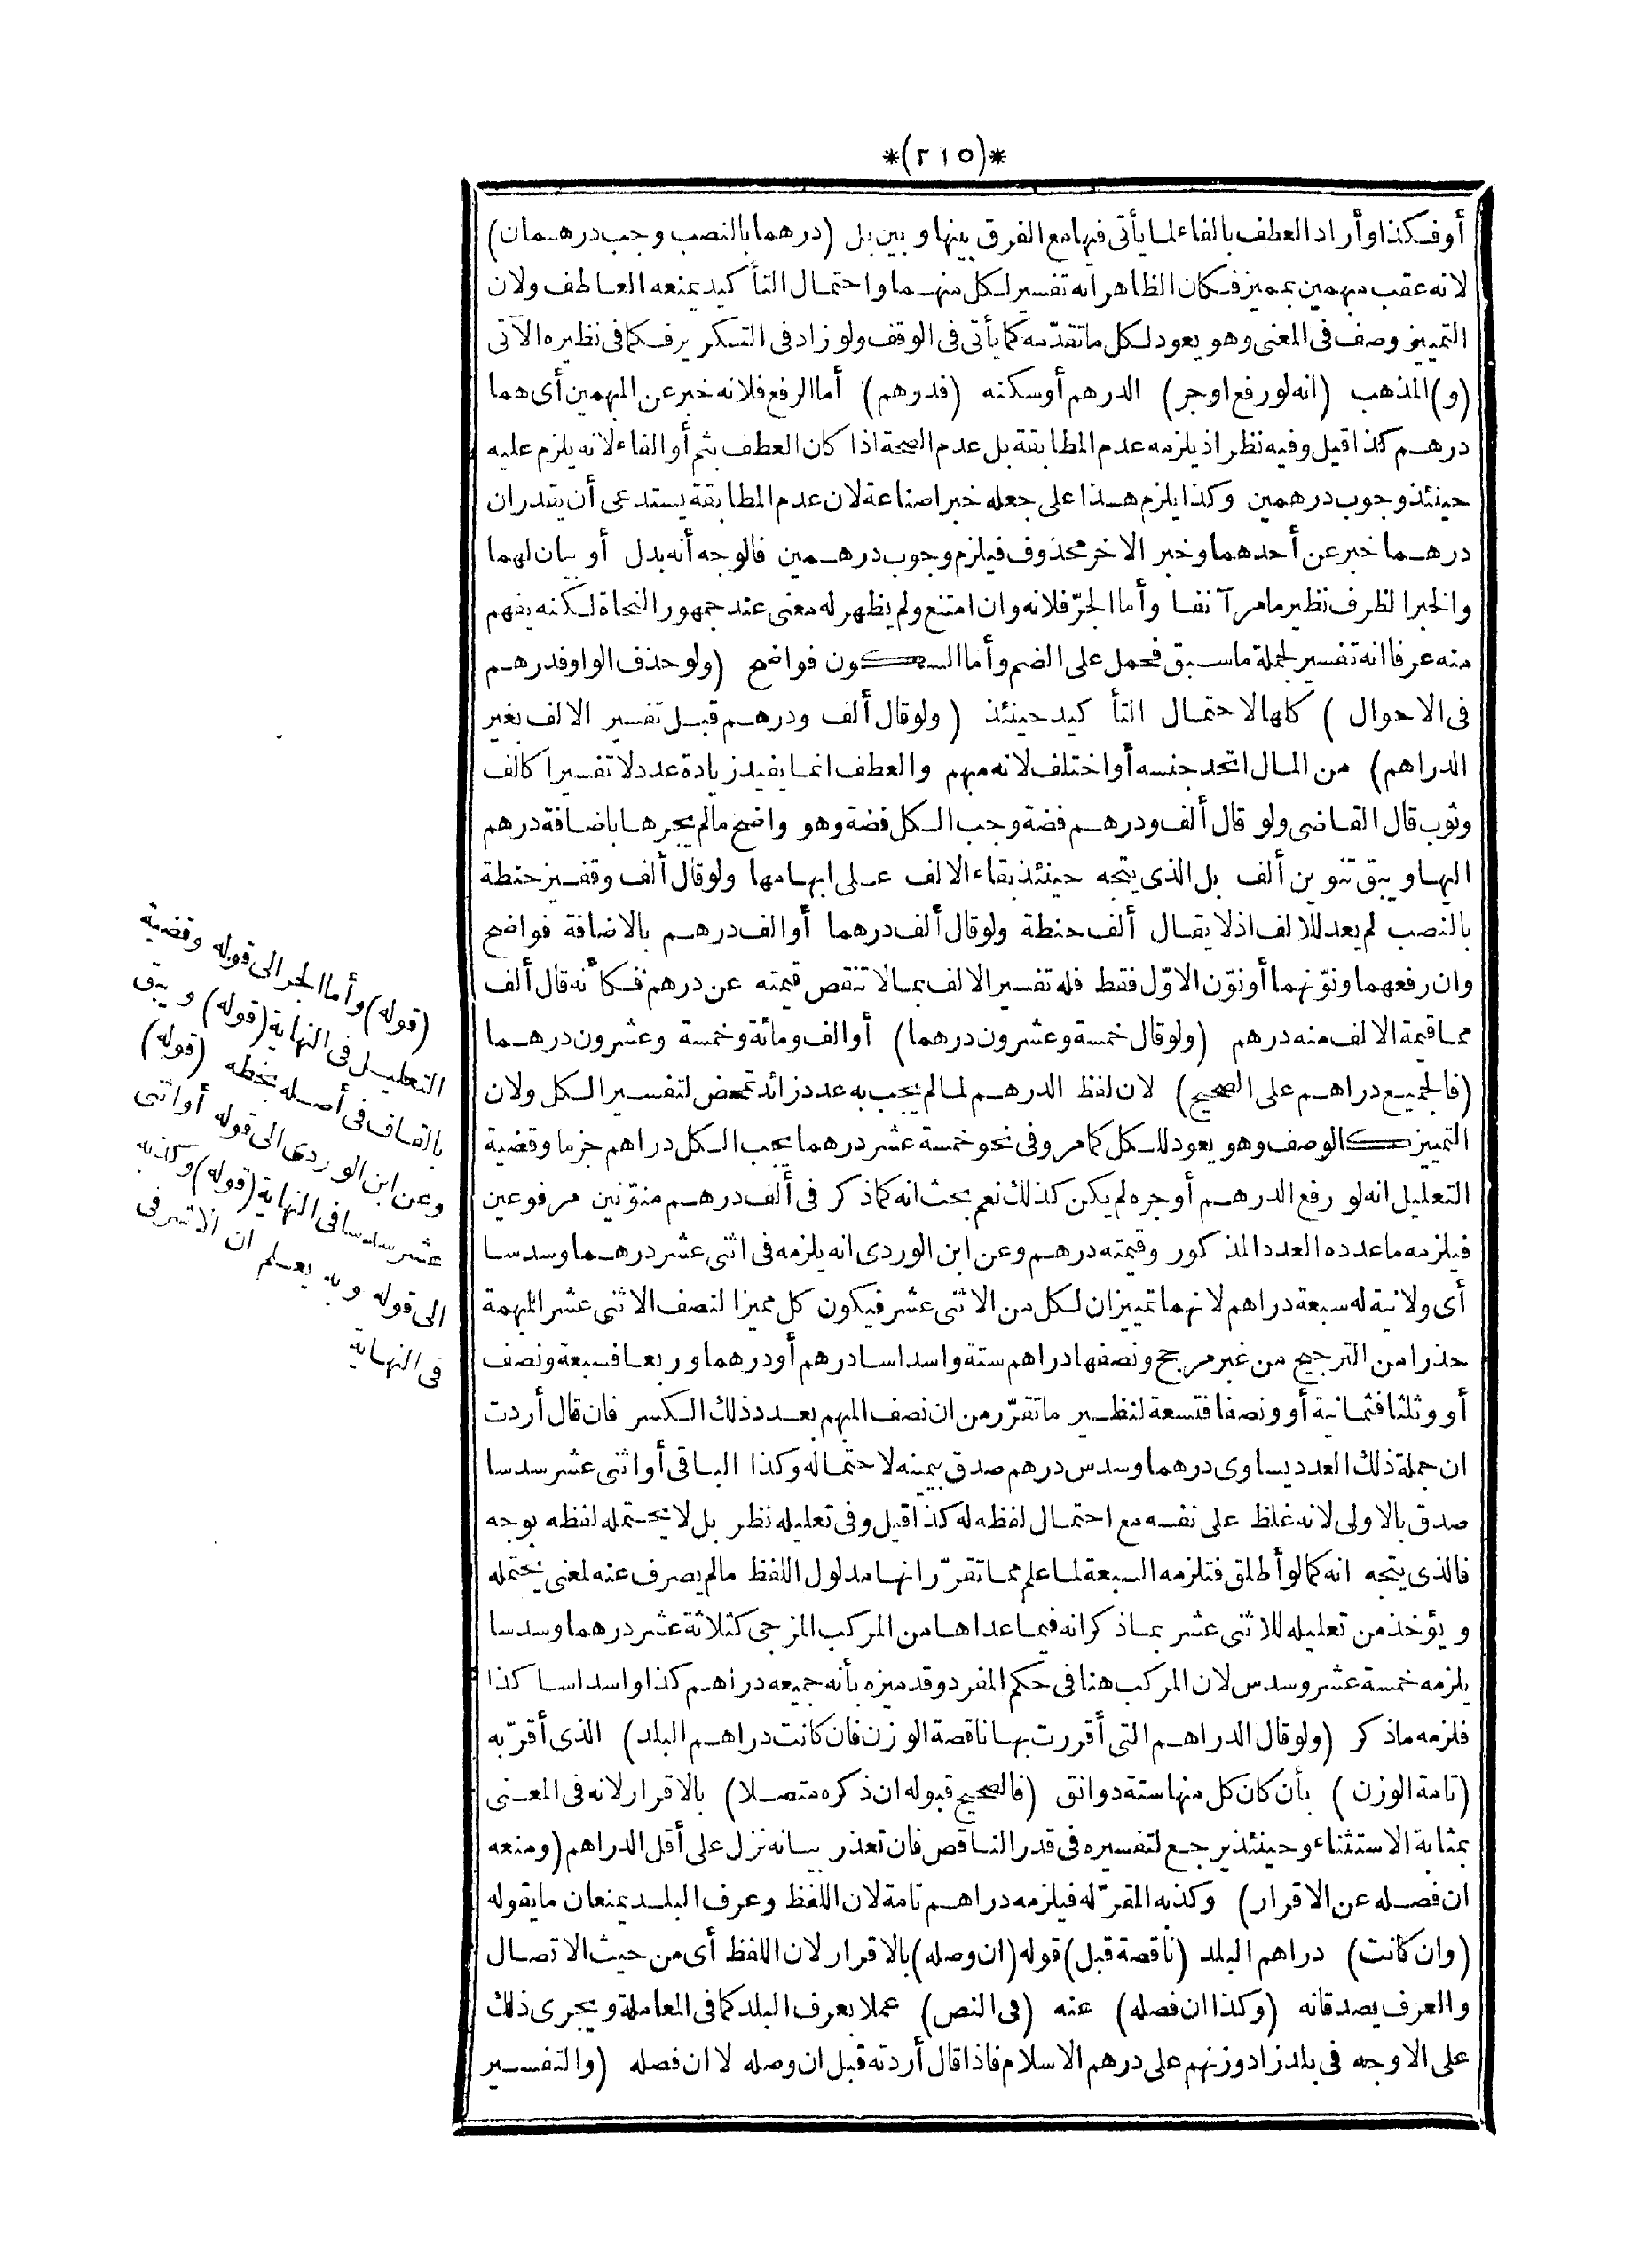 *(٢١٥)*
أوفكذا وأراد العطف بالفاء لما يأتى فيها مع الفرق بينها وبين بل (درهما بالنصب وجب درهمان)
لانه عقب مبهمين بمميز فكان الظاهر انه تفسير لكل منهما واحتمال التأكيد يمنعه العاطف ولان
التمييز وصف فى المعنى وهو يعود لكل ما تقدّمه كما يأتى فى الوقف ولو زاد فى التكرير فكما فى نظيره الآتى
(و) المذهب (انه لو رفع اوجر) الدرهم أو سكنه (فدرهم) أما الرفع فلانه خبر عن المبهمين أى هما
درهم كذا قيل وفيه نظر اذ يلزمه عدم المطابقة بل عدم الصحة اذا كان العطف بثم أو الفاء لانه يلزم عليه
حينئذ وجوب درهمين وكذا يلزم هذا على جعله خبرا صناعة لان عدم المطابقة يستدعى أن يقدران
درهما خبر عن أحدهما وخبر الاخر محذوف فيلزم وجوب درهمين فالوجه أنه بدل أو بيان لهما
والخبر الظرف نظير ما مر آنفا وأما الجرّ فلانه وان امتنع ولم يظهر له معنى عند جمهور النحاة لكنه يفهم
منه عرفا انه تفسير لجملة ما سبق فحمل على الضم وأما السكون فواضح (ولو حذف الواو فدرهم
فى الاحوال) كلها لاحتمال التأكيد حينئذ (ولو قال ألف ودرهم قبل تفسير الالف بغير
الدراهم) من المال اتحد جنسه أو اختلف لانه مبهم والعطف انما يفيد زيادة عدد لا تفسيرا كالف
وثوب قال القاضى ولو قال ألف ودرهم فضة وجب الكل فضة وهو واضح مالم يجرها باضافة درهم
اليها ويبق تنوين ألف بل الذى يتجه حينئذ بقاء الالف على ابهامها ولو قال ألف وقفيز حنطة
بالنصب لم يعد للالف اذ لا يقال ألف حنطة ولو قال ألف درهما أو الف درهم بالاضافة فواضح
وان رفعهما ونوّنهما أو نوّن الاوّل فقط فله تفسير الالف بما لا تنقص قيمته عن درهم فكأنه قال ألف
مما قيمة الالف منه درهم (ولو قال خمسة وعشرون درهما) أو الف ومائة وخمسة وعشرون درهما
(فالجميع دراهم على الصحيح) لان لفظ الدرهم لما لم يجب به عدد زائد تمحض لتفسير الكل ولان
التمييز كالوصف وهو يعود للكل كما مر وفى نحو خمسة عشر درهما يجب الكل دراهم جزما وقضية
التعليل انه لو رفع الدرهم أو جره لم يكن كذلك نعم بحث انه كما ذكر فى ألف درهم منوّنين مرفوعين
فيلزمه ما عدده العدد المذكور وقيمته درهم وعن ابن الوردى انه يلزمه فى اثنى عشر درهما وسدسا
أى ولا نية له سبعة دراهم لانهما تمييزان لكل من الاثنى عشر فيكون كل مميزا لنصف الاثنى عشر المبهمة
حذرا من الترجيح من غير مرجح ونصفها دراهم ستة واسداسا درهم أو درهما وربعا فسبعة ونصف
أو وثلثا فثمانية أو ونصفا فتسعة لنظير ما تقرّر من ان نصف المبهم بعدد ذلك الكسر فان قال أردت
ان جملة ذلك العدد يساوى درهما وسدس درهم صدق بيمينه لاحتماله وكذا الباقى أو اثنى عشر سدسا
صدق بالاولى لانه غلظ على نفسه مع احتمال لفظه له كذا قيل وفى تعليله نظر بل لا يحتمله لفظه بوجه
فالذى يتجه انه كما لو أطلق فتلزمه السبعة لما علم مما تقرّر انها مدلول اللفظ مالم يصرف عنه لمعنى يحتمله
ويؤخذ من تعليله للاثنى عشر بما ذكر انه فيما عداها من المركب المزجى كثلاثة عشر درهما وسدسا
يلزمه خمسة عشر وسدس لان المركب هنا فى حكم المفرد وقد ميزه بأنه جميعه دراهم كذا واسداسا كذا
فلزمه ما ذكر (ولو قال الدراهم التى أقررت بها ناقصة الوزن فان كانت دراهم البلد) الذى أقرّ به
(تامة الوزن) بأن كان كل منها ستة دوانق (فالصحيح قبوله ان ذكره متصلا) بالاقرار لانه فى المعنى
بمثابة الاستثناء وحينئذ يرجع لتفسيره فى قدر الناقص فان تعذر بيانه نزل على أقل الدراهم (ومنعه
ان فصله عن الاقرار) وكذبه المقرّ له فيلزمه دراهم تامة لان اللفظ وعرف البلد يمنعان ما يقوله
(وان كانت) دراهم البلد (ناقصة قبل) قوله (ان وصله) بالاقرار لان اللفظ أى من حيث الاتصال
والعرف يصدقانه (وكذا ان فصله) عنه (فى النص) عملا بعرف البلد كما فى المعاملة ويجرى ذلك
على الاوجه فى بلد زاد وزنهم على درهم الاسلام فاذا قال أردته قبل ان وصله لا ان فصله (والتفسير
(قوله) وأما الجر الى قوله وقضية
التعليل فى النهاية (قوله) ويبق
بالقاف فى أصله بخطه (قوله)
وعن ابن الوردى الى قوله أو اثنى
عشر سدسا فى النهاية (قوله) وكذبه
الى قوله وبه يعلم ان الاشرفى
فى النهاية